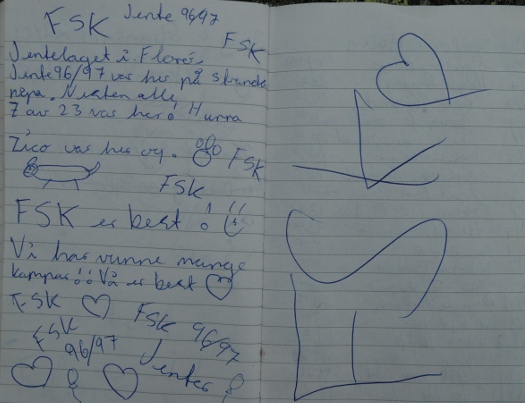 FSK Jente 96/97
FSK
Jentelaget i Florø
Jente 96/97 var her på strande
nepa. Nesten alle,
7 av 23 var her! Hurra
Zico var her og. FSK
FSK
FSK er best!
Vi har vunne mange
kampar!! Vå er best
FSK FSK 96/97
FSK
96/97 Jenter